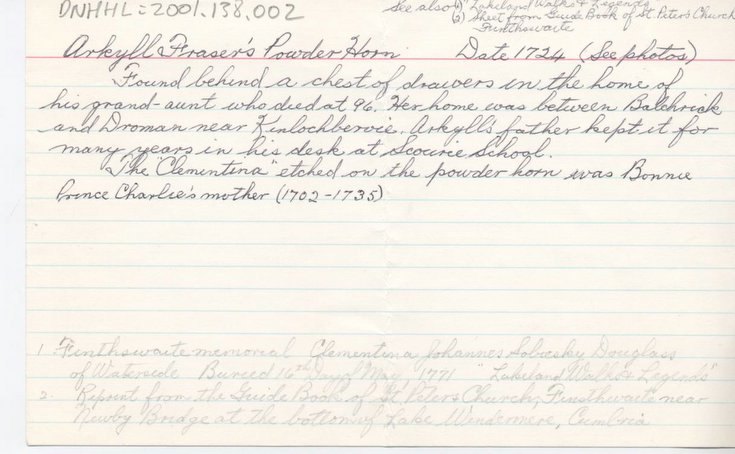 DNHHL = 2001.138.002
See also (1) Lakeland Walks & Legends
(2) Sheet from Guide Book of St Peter's Church
Finthswaite
Arkyll Fraser's Powder Horn Date 1724 (See photos)
Found behind a chest of drawers in the home of
his grand-aunt who died at 96. Her home was between Balchrick
and Droman near Kinlochbervie. Arkyll's father kept it for
many years in his desk at Scourie School.
The "Clementina" etched on the powder horn was Bonnie
Prince Charlie's mother (1702-1735)
1. Finthswaite memorial Clementina Johannes Sobiesky Douglass
of Waterside Buried 16th Day of May, 1771 "Lakeland Walks & Legends"
2. Reprint from the Guide Book of St Peters Church, Finsthwaite near
Newby Bridge at the bottom of Lake Windermere, Cumbria